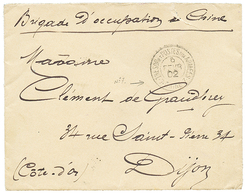 Brigade d'occupation de Chine
Madame
Clément de Grandprey
34 rue Saint-Pierre 34
(Côte-d'or) Dijon